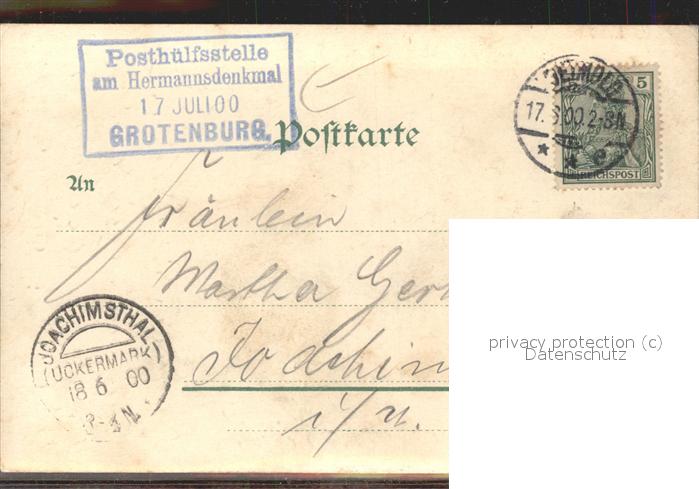 Posthülfsstelle
am Hermannsdenkmal
17 JULI 00
GROTENBURG.
Postkarte
DETMOLD
17. 6. 00. 2-3N.
* * e
5
REICHSPOST
An
Fräulein
Martha Ger
Joachim
i/U.
JOACHIMSTHAL
(UCKERMARK)
18 6 00
N.
privacy protection (c)
Datenschutz